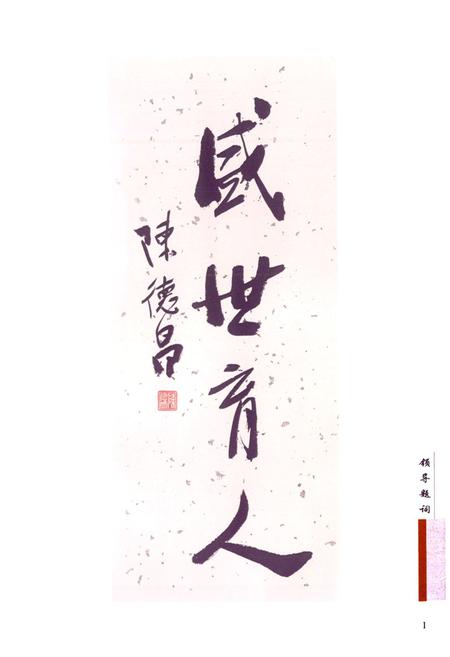 盛世育人
陳德昌
领导题词
1